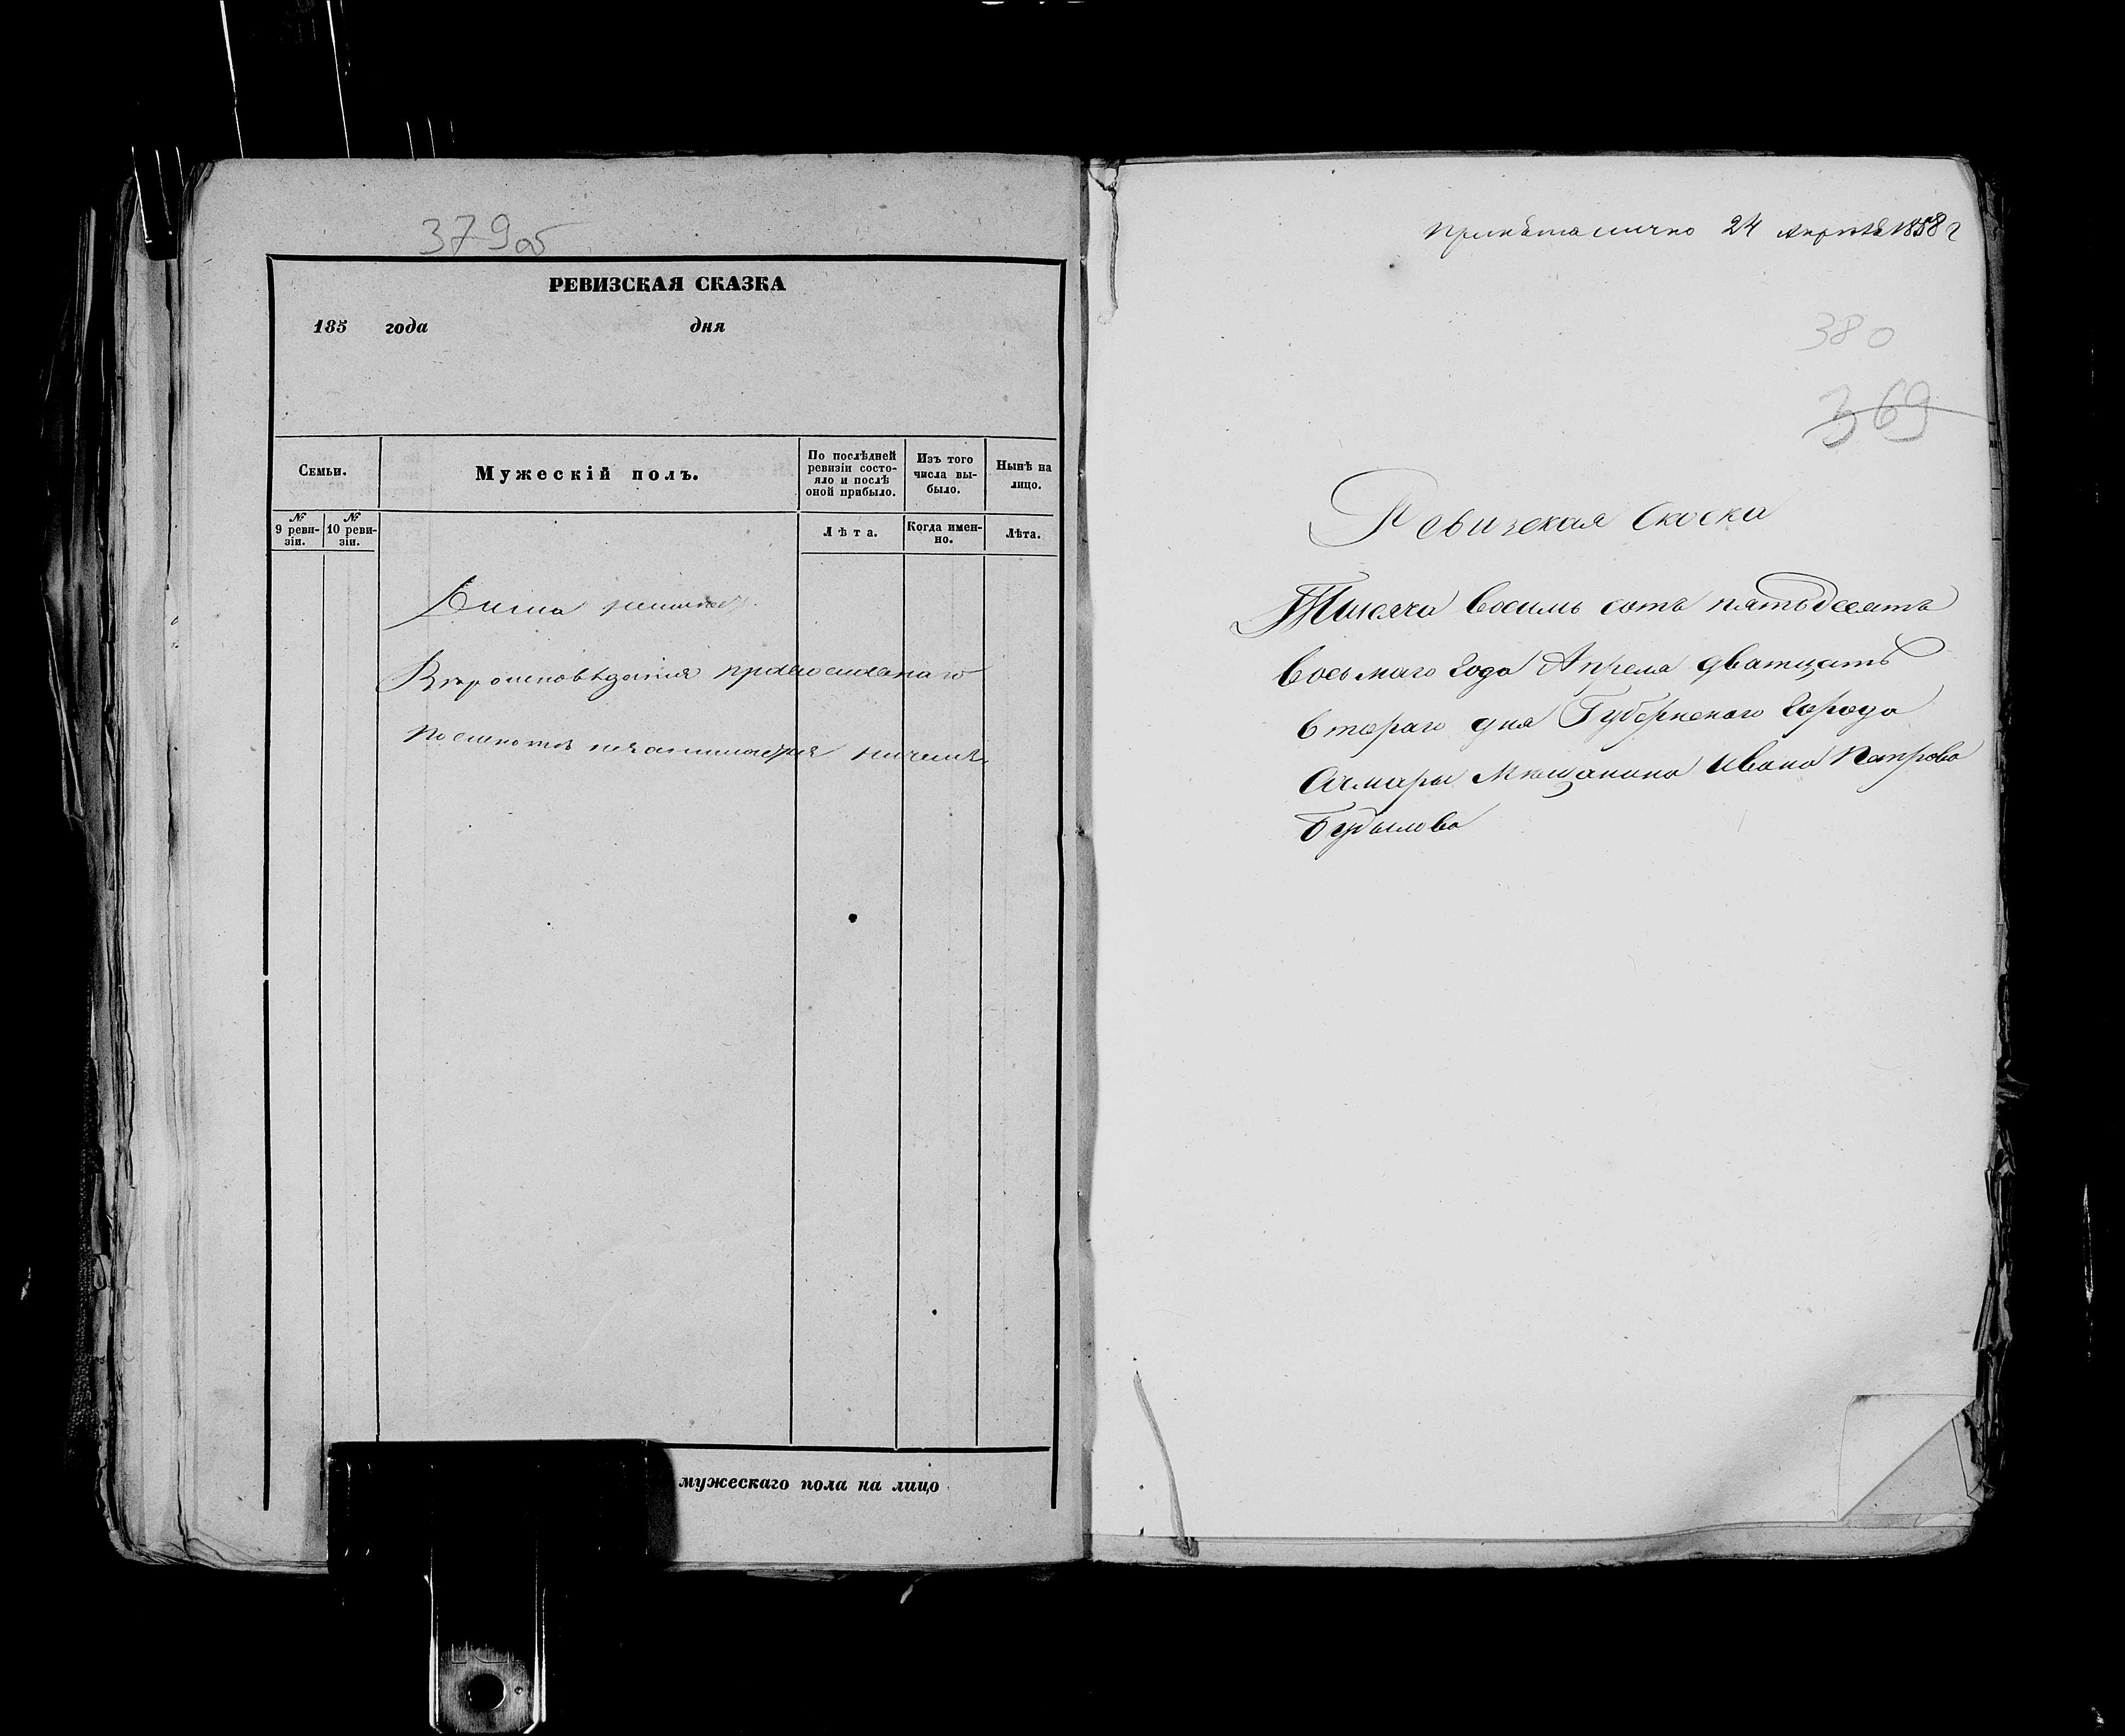 379об
РЕВИЗСКАЯ СКАЗКА
185 года дня
Семьи.
Мужескій полъ.
По послѣдней ревизіи состояло и послѣ оной прибыло.
Изъ того числа выбыло.
Нынѣ на лицо.
№ 9 ревизіи.
№ 10 ревизіи.
Лѣта.
Когда именно.
Лѣта.
Вѣроисповѣданія православнаго
незанимается ничемъ
мужескаго пола на лицо
Принята лично 24 апреля 1858 г
380
369
Ревизская скоска
Тысяча восемь сотъ пятьдесятъ
восьмаго года Апреля дватцать
втораго дня Губернскаго города
Самары Мещанина Ивана Петрова
Будылова